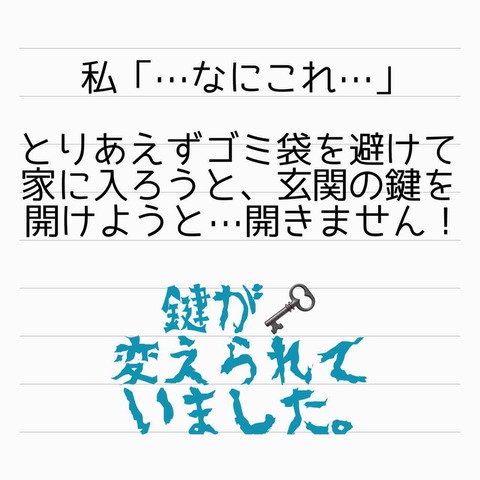 私「…なにこれ…」
とりあえずゴミ袋を避けて
家に入ろうと、玄関の鍵を
開けようと…開きません！
鍵が
変えられて
いました。